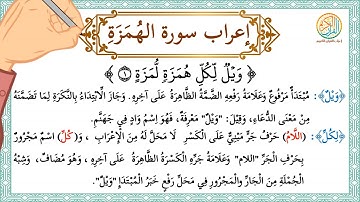 إعراب سورة الهُمَزَةِ
﴿ وَيْلٌ لِّكُلِّ هُمَزَةٍ لُّمَزَةٍ ۝١ ﴾
﴿وَيْلٌ﴾: مُبْتَدَأٌ مَرْفُوعٌ وَعَلَامَةُ رَفْعِهِ الضَّمَّةُ الظَّاهِرَةُ عَلَى آخِرِهِ. وَجَازَ الْاِبْتِدَاءُ بِالنَّكِرَةِ لِمَا تَضَمَّنَهُ
مِنْ مَعْنَى الدُّعَاءِ، وَقِيْلَ: "وَيْلٌ" مَعْرِفَةٌ، فَهُوَ اِسْمُ وَادٍ فِي جَهَنَّمِ.
﴿لِكُلِّ﴾: (اللَّامُ) حَرْفُ جَرٍّ مَبْنِيٌّ عَلَى الْكَسْرِ لَا مَحَلَّ لَهُ مِنَ الْإِعْرَابِ ، وَ(كُلِّ) اسْمٌ مَجْرُورٌ
بِحَرْفِ الْجَرِّ "اللام" وَعَلَامَةُ جَرِّهِ الْكَسْرَةُ الظَّاهِرَةُ عَلَى آخِرِهِ ، وَهُوَ مُضَافٌ، وَشِبْهُ
الْجُمْلَةِ مِنَ الْجَارِّ وَالْمَجْرُورِ فِي مَحَلِّ رَفْعِ خَبَرُ الْمُبْتَدَإِ "وَيْلٌ".